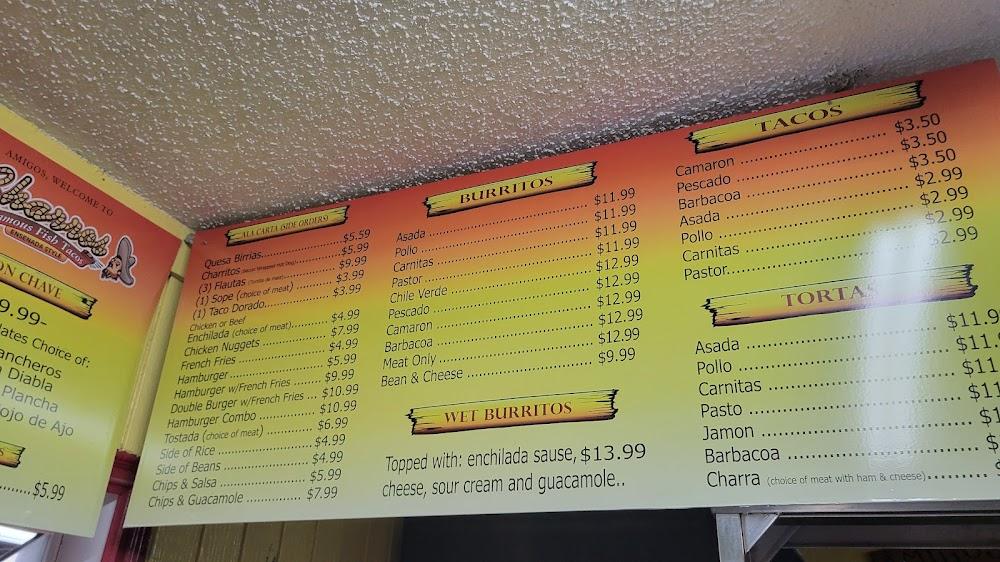 AMIGOS, WELCOME TO
Famous Fish Tacos
ENSENADA STYLE
ON CHAVE
9.99-
lates Choice of:
ancheros
Diabla
Plancha
ojo de Ajo
$5.99
ALA CARTA (SIDE ORDERS)
Quesa Birrias $5.59
Charritos (Bacon Wrapped Hot Dog) $5.99
(3) Flautas $9.99
(1) Sope (choice of meat) $3.99
(1) Taco Dorado $3.99
Chicken or Beef
Enchilada (choice of meat) $4.99
Chicken Nuggets $7.99
French Fries $4.99
Hamburger $5.99
Hamburger w/French Fries $9.99
Double Burger w/French Fries $10.99
Hamburger Combo $10.99
Tostada (choice of meat) $6.99
Side of Rice $4.99
Side of Beans $4.99
Chips & Salsa $5.99
Chips & Guacamole $7.99
BURRITOS
Asada $11.99
Pollo $11.99
Carnitas $11.99
Pastor $11.99
Chile Verde $12.99
Pescado $12.99
Camaron $12.99
Barbacoa $12.99
Meat Only $12.99
Bean & Cheese $9.99
WET BURRITOS
Topped with: enchilada sause, $13.99
cheese, sour cream and guacamole..
TACOS
Camaron $3.50
Pescado $3.50
Barbacoa $3.50
Asada $2.99
Pollo $2.99
Carnitas $2.99
Pastor $2.99
TORTAS
Asada $11.9
Pollo $11.
Carnitas $11
Pasto $11
Jamon $1
Barbacoa $
Charra (choice of meat with ham & cheese)